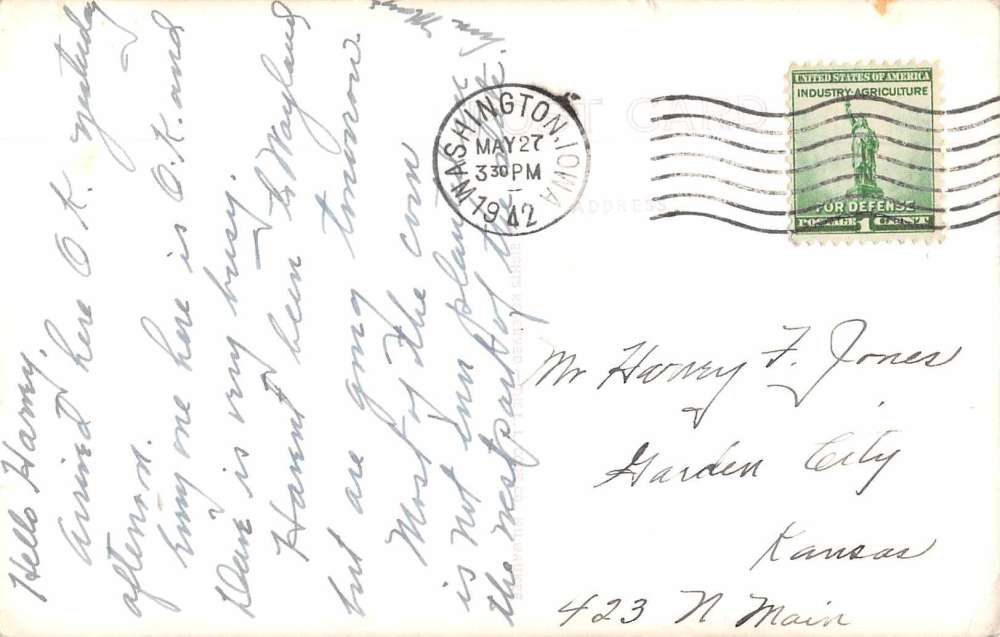 Hello Harvey,
Arrived here O.K. yesterday
afternon.
Every one here is O.K. and
is very busy.
Havent been to Wayland
but are going tomorrow.
Most of the corn
is not in planting
the west part of the state.
WASHINGTON, IOWA
MAY 27
3 30 PM
1942
POST CARD
ADDRESS
UNITED STATES OF AMERICA
INDUSTRY-AGRICULTURE
FOR DEFENSE
POSTAGE 1 CENT
Mr Harvey F. Jones
Garden City
Kansas
423 N Main